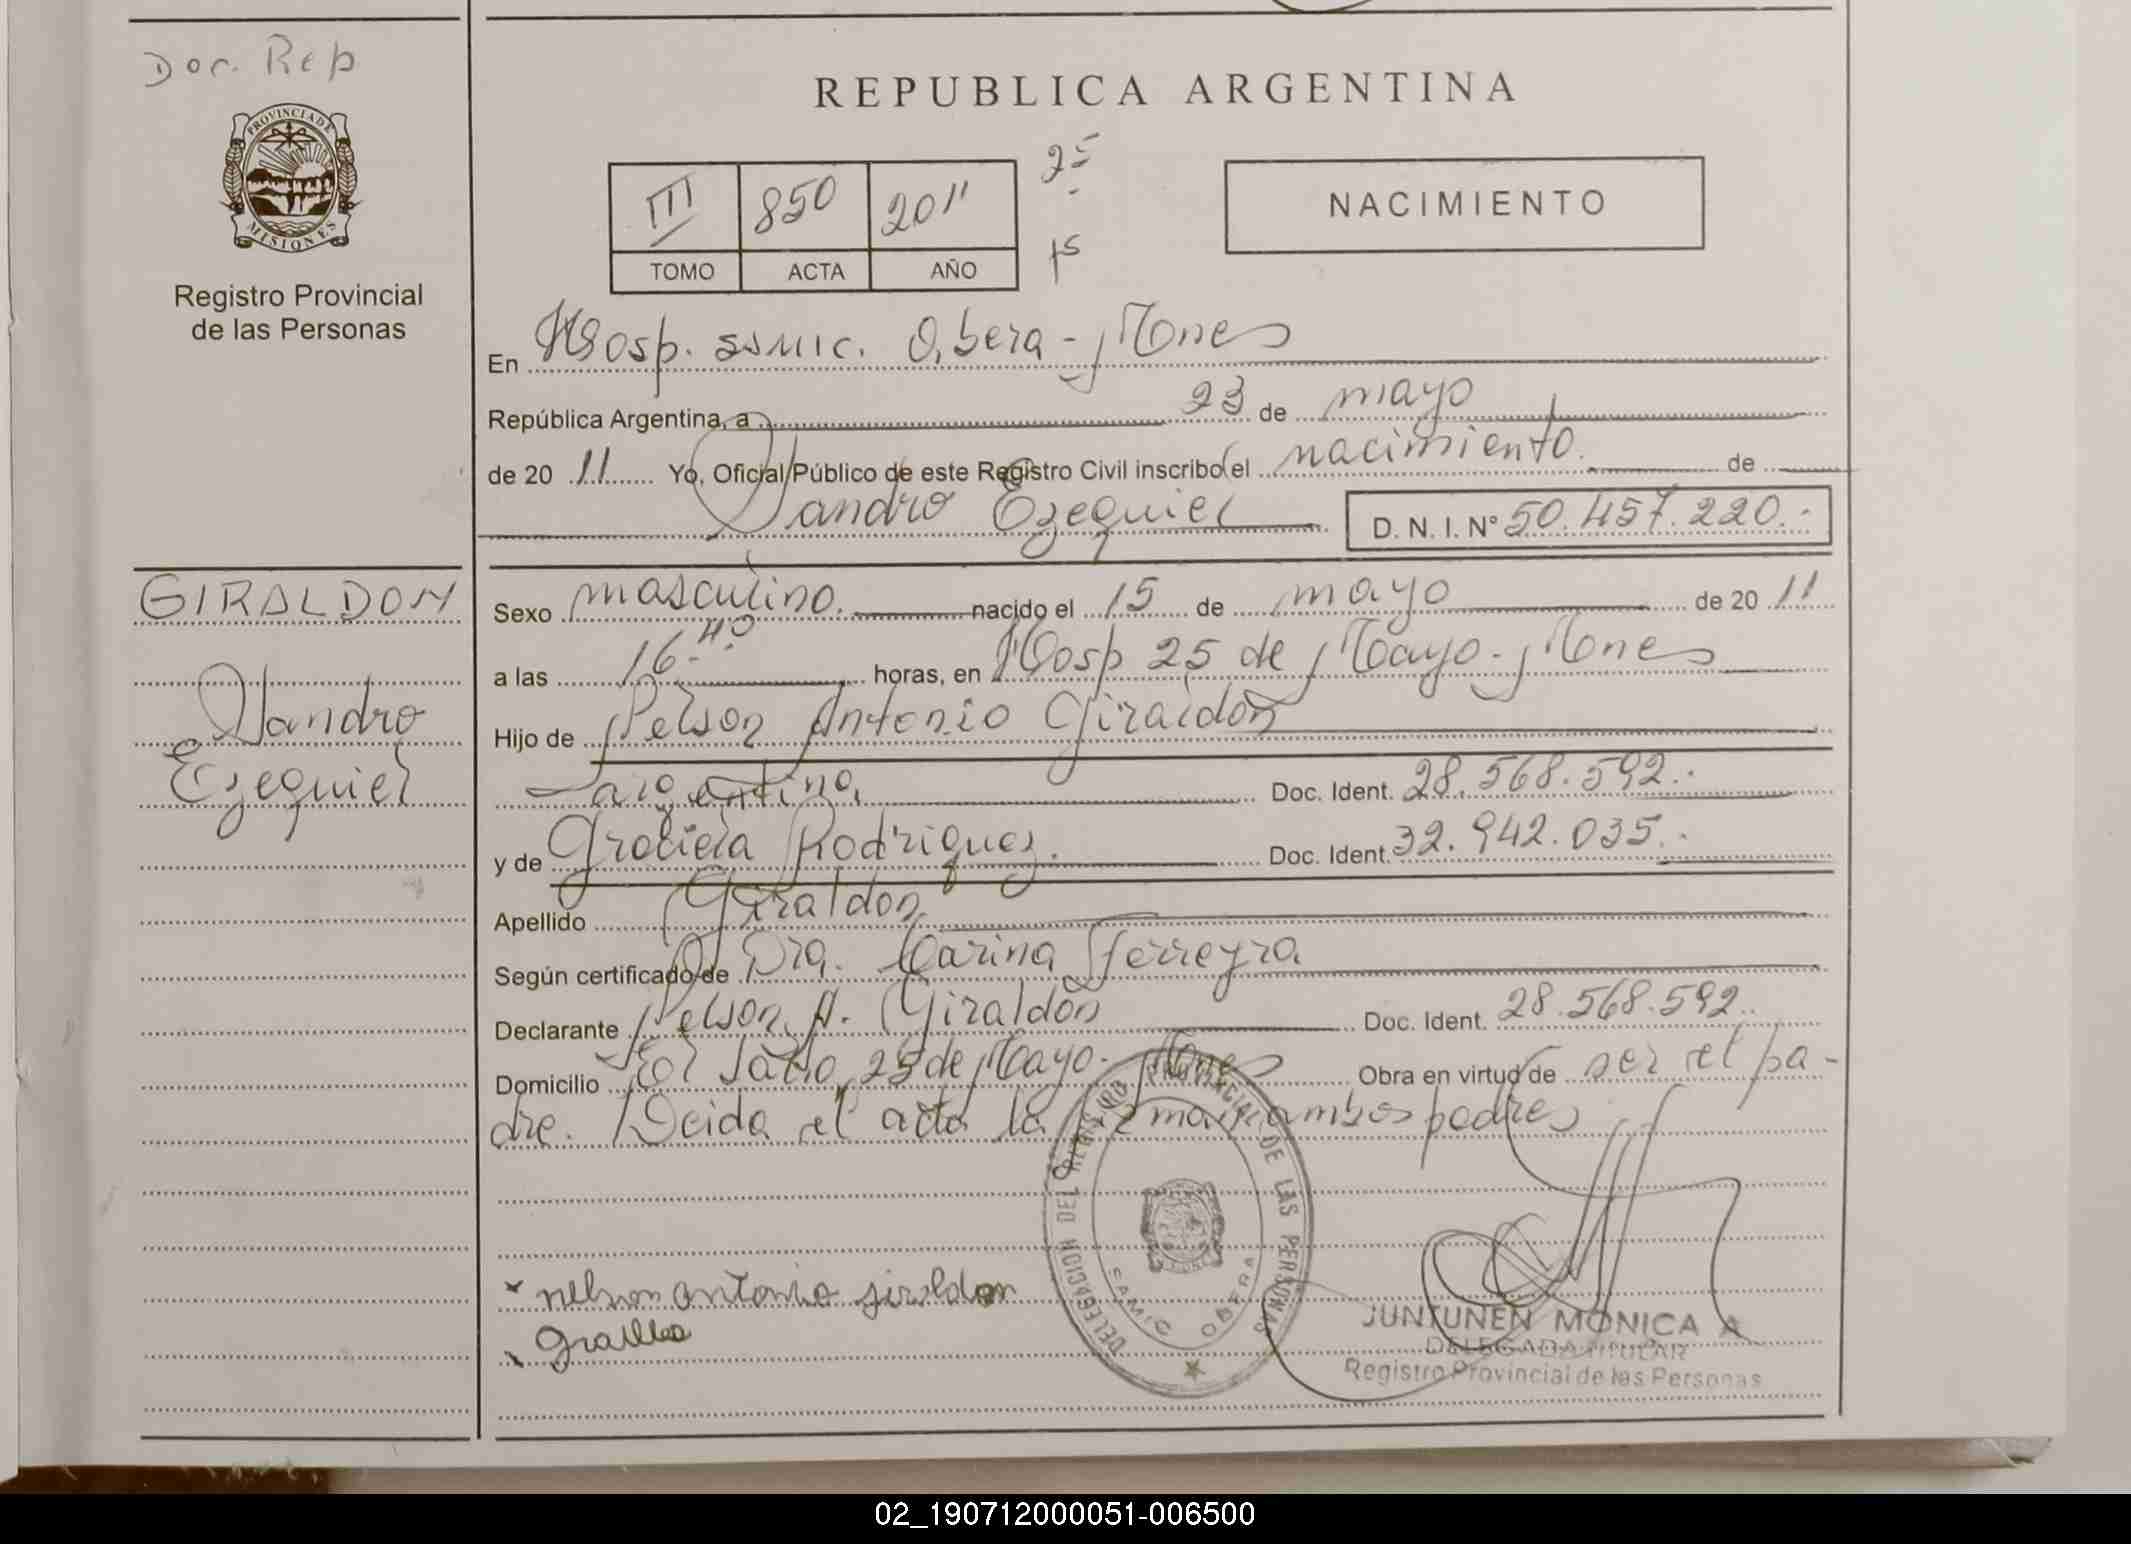 Doc. Rep
PROVINCIA DE
MISIONES
Registro Provincial
de las Personas
GIRALDON
Sandro
Ezequiel
REPUBLICA ARGENTINA
III 850 2011
TOMO ACTA AÑO
25
15
NACIMIENTO
En Hosp. SAMIC. Obera - Mnes
República Argentina, a 23 de mayo
de 20 11 Yo, Oficial Público de este Registro Civil inscribo el nacimiento. de
Sandro Ezequiel D. N. I. Nº 50.457.220.-
Sexo masculino. nacido el 15 de mayo de 20 11
a las 16.40 horas, en Hosp 25 de Mayo - Mnes
Hijo de Nelson Antonio Giraldon
argentino, Doc. Ident. 28.568.592.-
y de Graciela Rodriguez. Doc. Ident. 32.942.035.-
Apellido Giraldon
Según certificado de Dra. Carina Ferreyra
Declarante Nelson A. Giraldon Doc. Ident. 28.568.592.
Domicilio El Salto 25 de Mayo - Mnes Obra en virtud de ser el pa-
dre. Leida el acta la firman ambos padres
nelson antonio giraldon
DELEGACION DEL REGISTRO PROVINCIAL DE LAS PERSONAS
SAMIC OBERA
JUNTUNEN MONICA A
DELEGADA TITULAR
Registro Provincial de las Personas
02_190712000051-006500